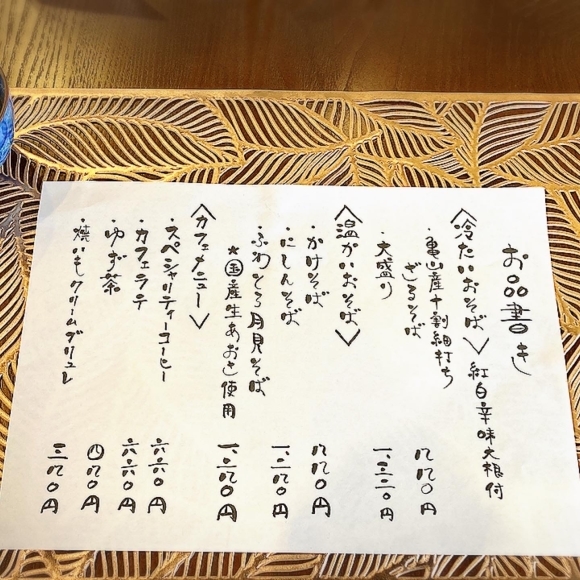 お品書き
〈冷たいおそば〉紅白辛味大根付
・亀山産十割細打ち
ざるそば 八八〇円
・大盛り
〈温かいおそば〉
・かけそば 八八〇円
・にしんそば
・ふわとろ月見そば
＊国産生あおさ使用
〈カフェメニュー〉
・スペシャリティーコーヒー 六六〇円
・カフェラテ 六六〇円
・ゆず茶 四八〇円
・焼いもクリームブリュレ 三八〇円